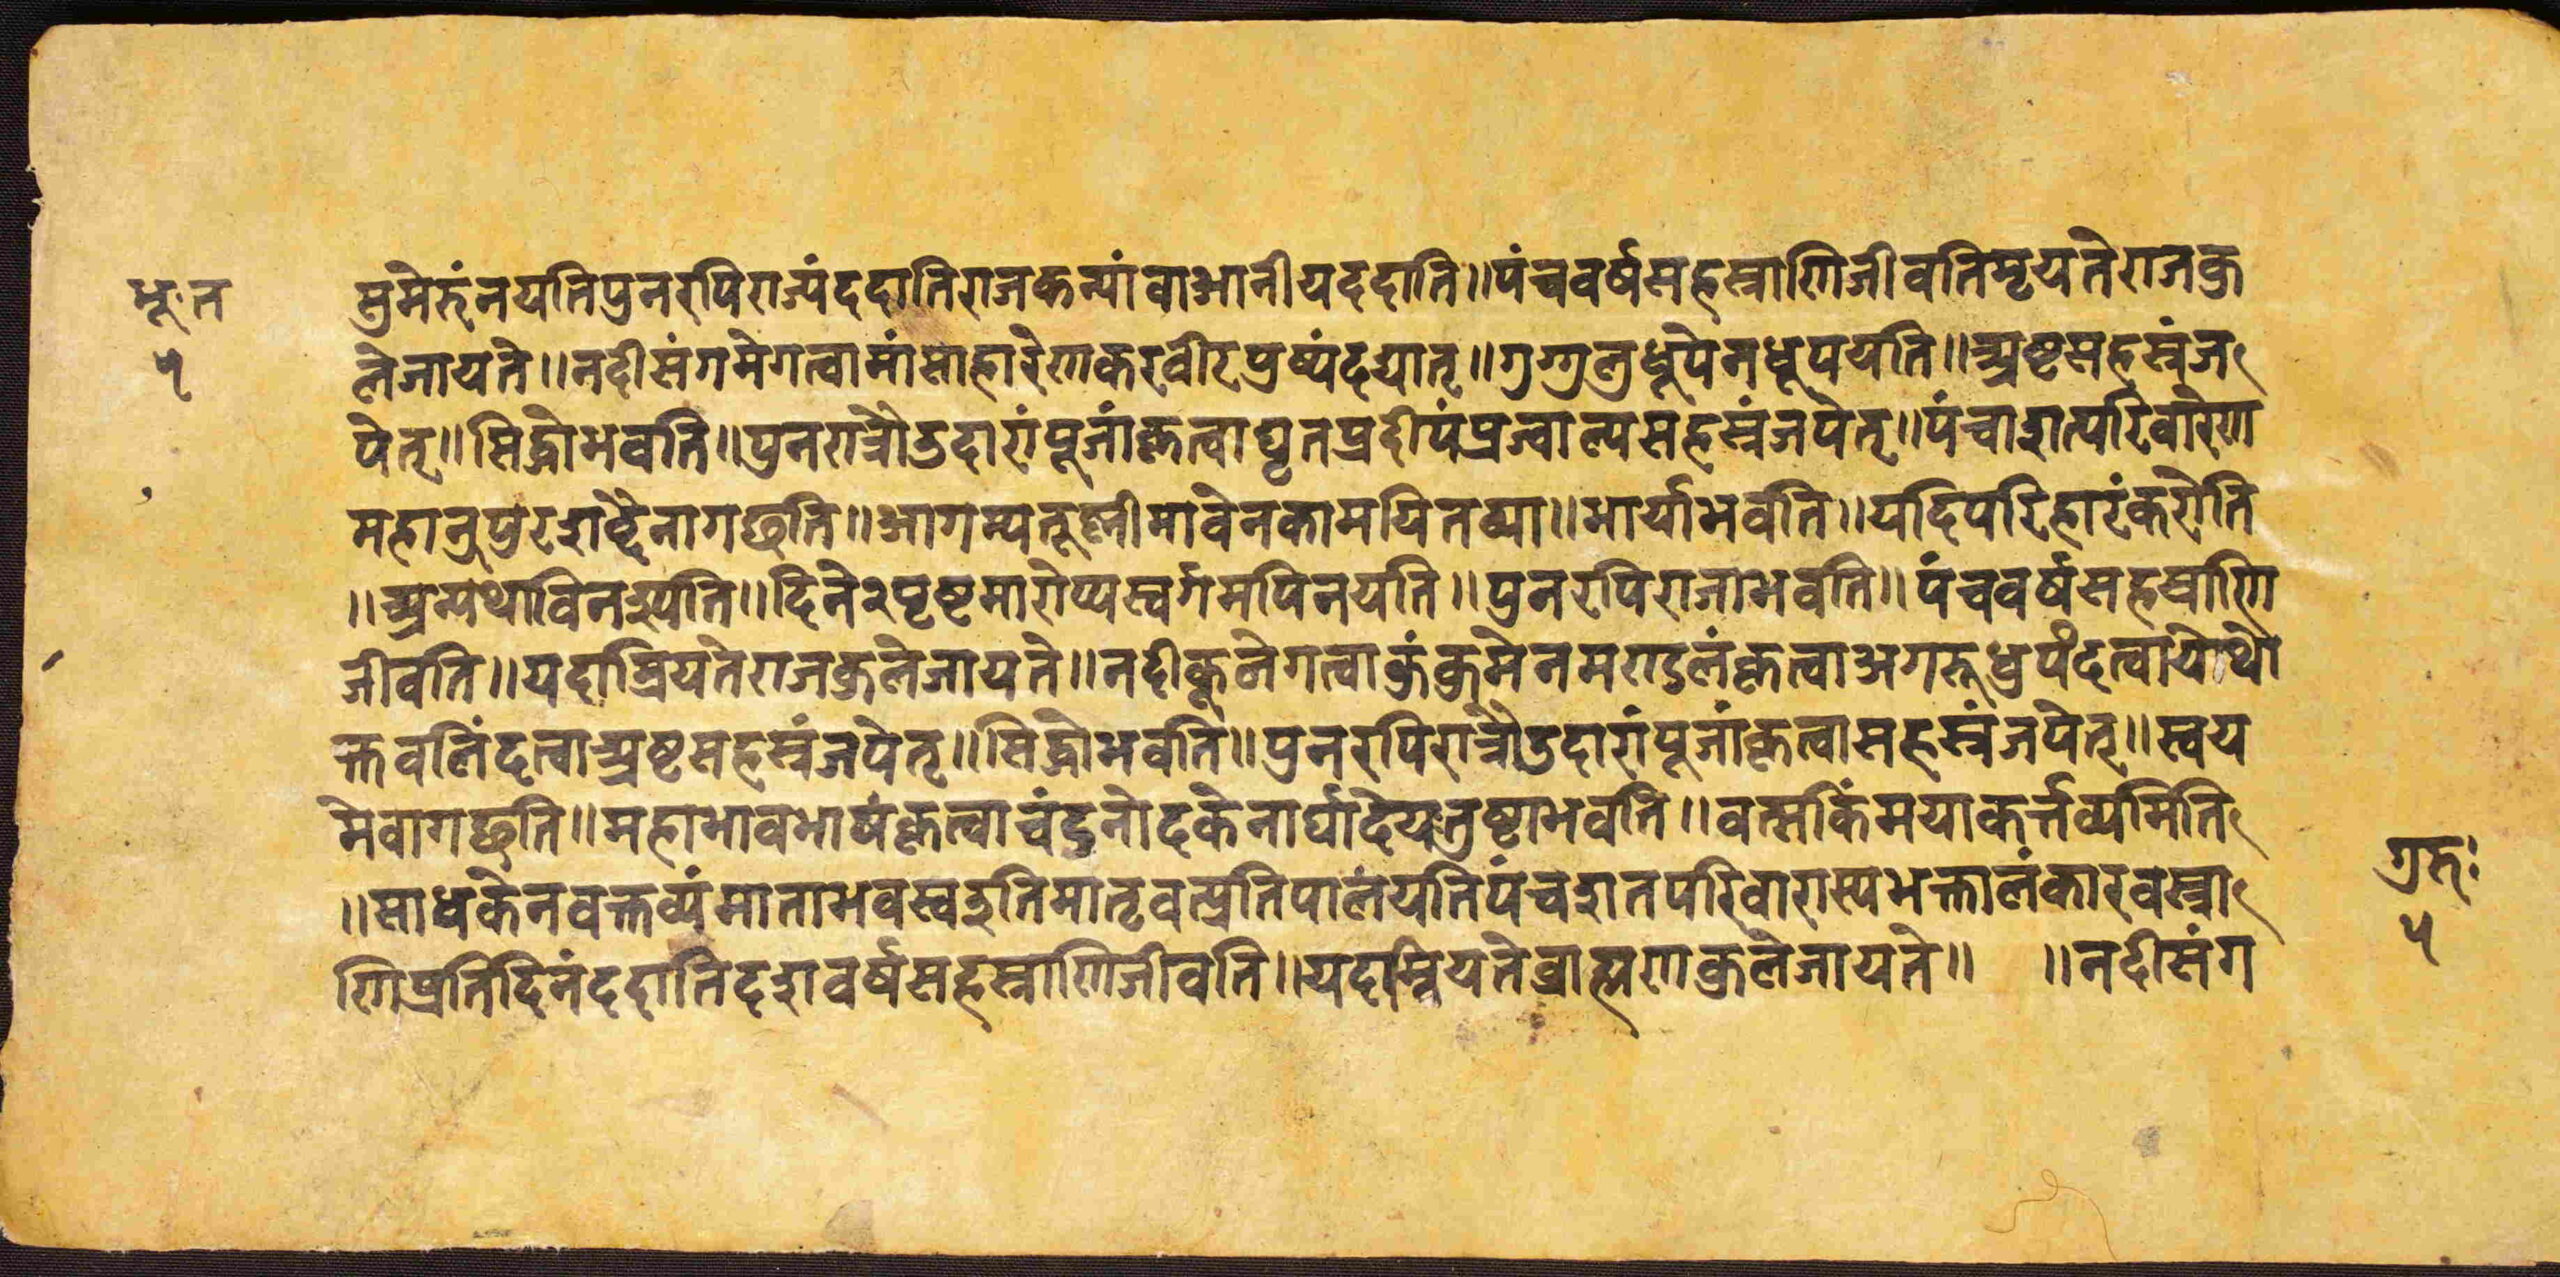 भू॰त
५
सुमेरुंनयतिपुनरपिराज्यंददातिराजकन्यांवाआनीयददाति॥पंचवर्षसहस्राणिजीवतिमृयतेराजकु
लेजायते॥नदीसंगमेगत्वामांसाहारेणकरवीरपुष्पंदद्यात्॥गुग्गुलुधूपेनधूपयति॥अष्टसहस्रंज
पेत्॥सिद्धोभवति॥पुनरात्रौउदारांपूजांकृत्वाघृतप्रदीपंप्रज्वाल्यसहस्रंजपेत्॥पंचाशत्परिवारेण
महानुपुरशब्देनागछति॥आगम्यतूष्णीभावेनकामयितव्या॥भार्याभवति॥यदिपरिहारंकरोति
॥अन्यथाविनश्यति॥दिने२पृष्टमारोप्यस्वर्गमपिनयति॥पुनरपिराजाभवति॥पंचवर्षसहस्राणि
जीवति॥यदाम्रियतेराजकुलेजायते॥नदीकूलेगत्वाकुंकुमेनमण्डलंकृत्वाअगरूधुपंदत्वायोथो
क्तवलिंदत्वाअष्टसहस्रंजपेत्॥सिद्धोभवति॥पुनरपिरात्रौउदारांपूजांकृत्वासहस्रंजपेत्॥स्वय
मेवागछति॥महाभावभाषंकृत्वाचंदनोदकेनार्घादेयतुष्टाभवति॥वत्सकिंमयाकर्त्तव्यमिति
॥साधकेनवक्तव्यंमाताभवस्वइतिमातृवत्प्रतिपालंयतिपंचशतपरिवारास्यभक्तालंकारवस्त्रा
णिप्रतिदिनंददातिदशवर्षसहस्राणिजीवति॥यदाम्रियतेब्राह्मणकुलेजायते॥ ॥नदीसंग
गुरु:
५